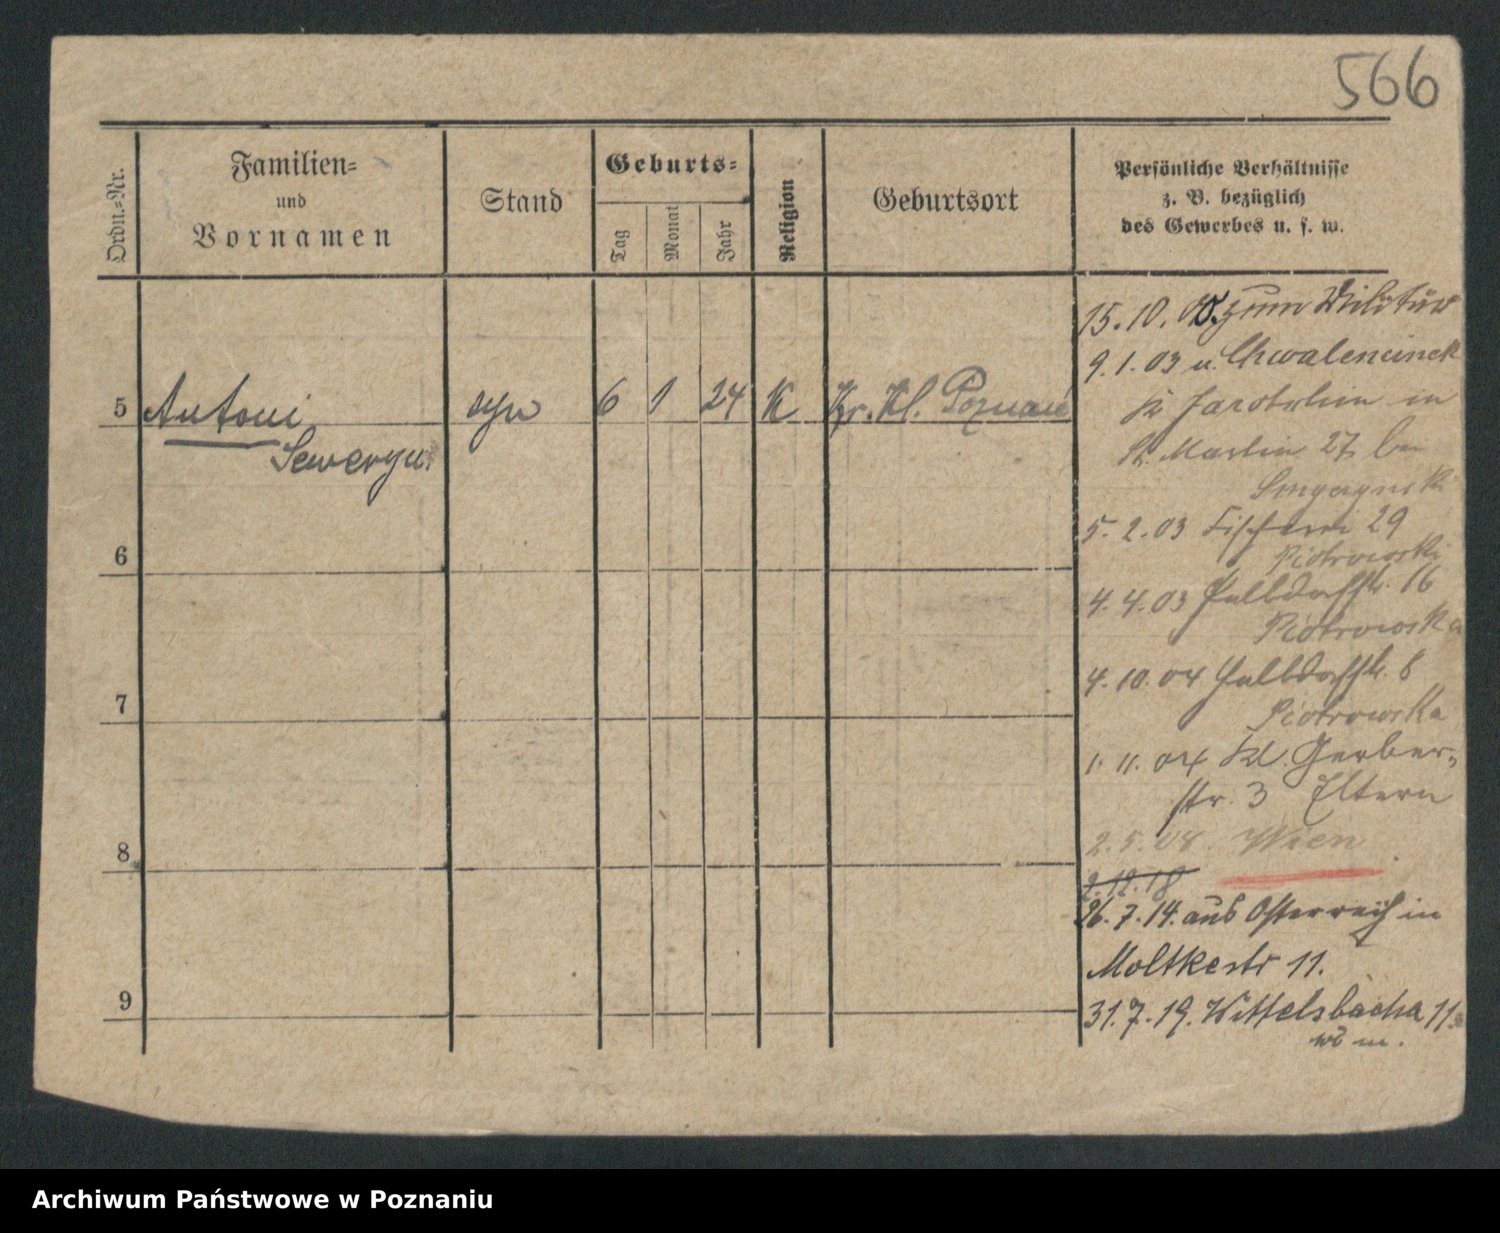 566
Ordn.-Nr.
Familien-
und
Vornamen
Stand
Geburts-
Tag
Monat
Jahr
Religion
Geburtsort
Persönliche Verhältnisse
z. B. bezüglich
des Gewerbes u. s. w.
15.10. 00. zum Militär
9.1.03 u. Chwalencinek
K Jarotschin in
St. Martin 27 bei
5
Antoni
syn
6 1 24
K
Kr. Kl. Poznań
Seweryn.
5.2.03 Fischerei 29
Piotrowski
6
4.4.03 Halbdorfstr. 16
Piotrowska
4.10.04 Halbdorfstr. 8
Piotrowska
7
1.11.04 Kl. Gerber-
str. 3 Eltern
2.5.08. Wien
8
2.12.18
26.7.14. aus Österreich in
Moltkestr 11.
9
31.7.19. Wittelsbacha 11
Archiwum Państwowe w Poznaniu